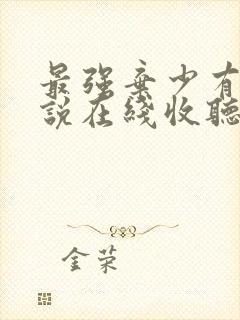 最强弃少有
说在线收听
金荣